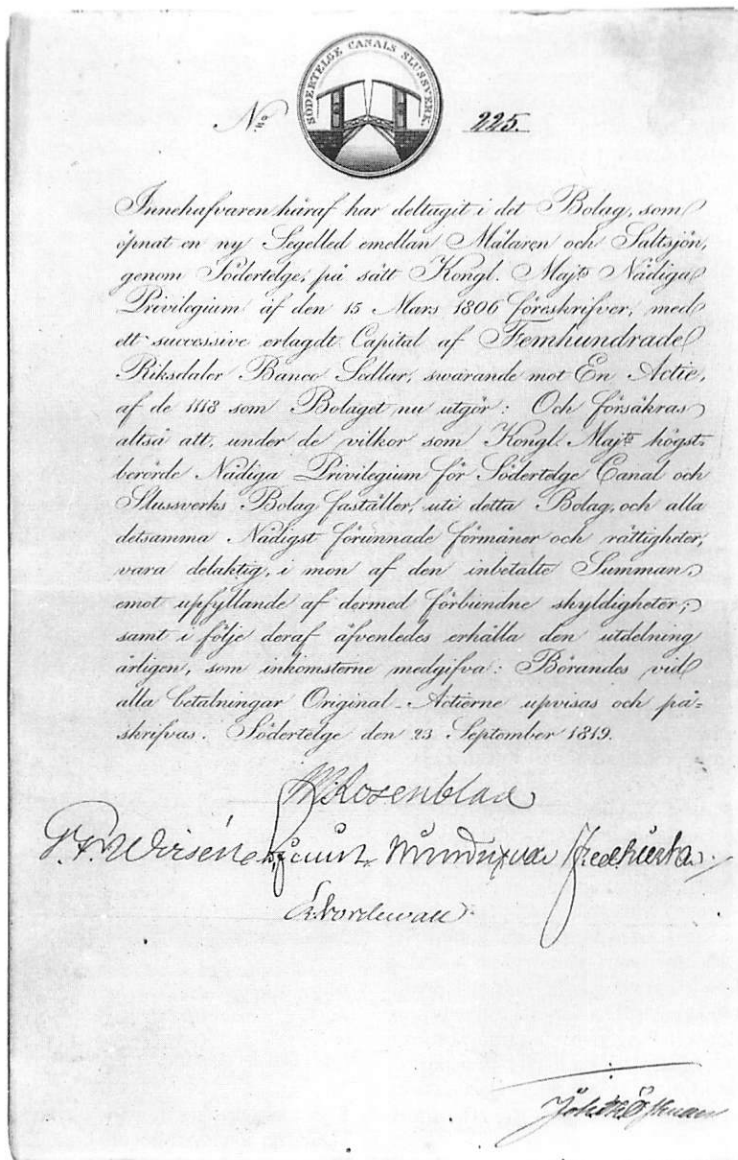 SÖDERTELGE CANALS SLUSSVERK.
N:ro 225.
Innehafvaren häraf har deltagit i det Bolag, som
öpnat en ny Segelled emellan Mälaren och Saltsjön,
genom Södertelge, på sätt Kongl. Majts Nådiga
Privilegium af den 15 Mars 1806 föreskrifver, med
ett successive erlagdt Capital af Femhundrade
Riksdaler Banco Sedlar, swarande mot En Actie,
af de 1118 som Bolaget nu utgör: Och försäkras
altså att, under de vilkor som Kongl. Majts högst-
berörde Nådiga Privilegium för Södertelge Canal och
Slussverks Bolag faställer, uti detta Bolag, och alla
detsamma Nådigst förunnade förmåner och rättigheter,
vara delaktig, i mon af den inbetalte Summan,
emot upfyllande af dermed förbundne skyldigheter;
samt i följe deraf äfvenledes erhålla den utdelning
årligen, som inkomsterne medgifva: Börandes vid
alla betalningar Original-Actierne upvisas och på=
skrifvas. Södertelge den 23 September 1819.
Rosenblad
Wirsén